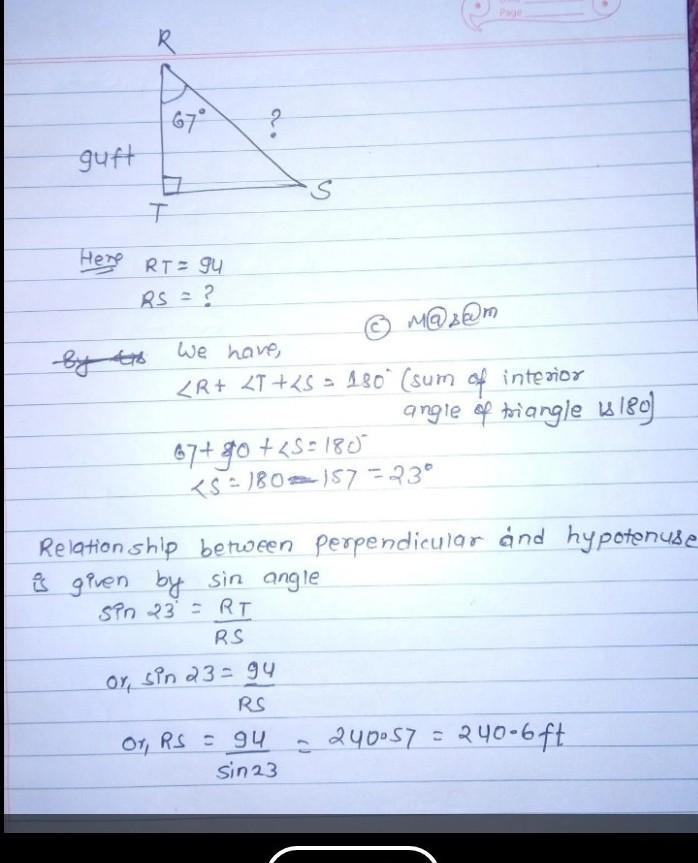 Page
R
67°
?
94ft
S
T
Here RT = 94
RS = ?
© M@s@m
We have,
∠R + ∠T + ∠S = 180° (sum of interior
angle of triangle is 180)
67 + 90 + ∠S = 180°
∠S = 180 - 157 = 23°
Relationship between perpendicular and hypotenuse
is given by sin angle
sin 23° = RT
RS
or, sin 23 = 94
RS
or, RS = 94 = 240.57 = 240.6 ft
sin 23